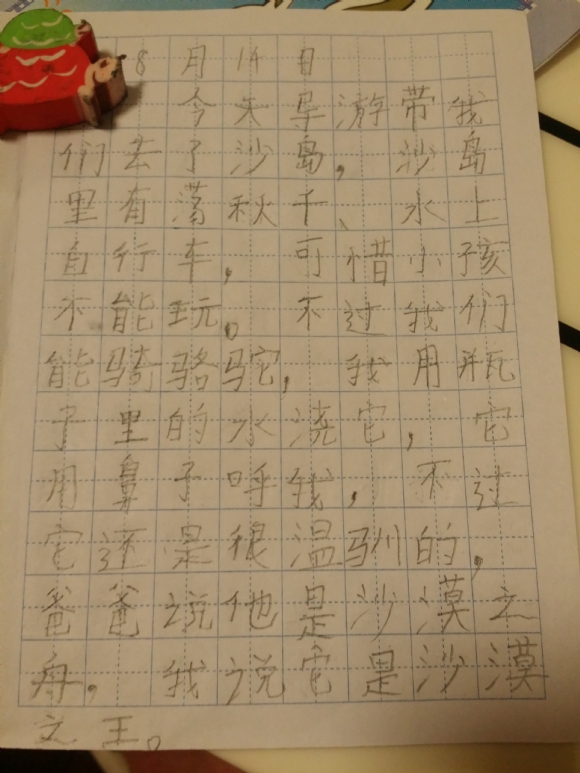 8月14日
今天导游带我
们去了沙岛，沙岛
里有荡秋千、水上
自行车，可惜小孩
不能玩。不过我们
能骑骆驼，我用瓶
子里的水浇它，它
用鼻子呼我，不过
它还是很温驯的，
爸爸说他是沙漠之
舟，我说它是沙漠
之王。